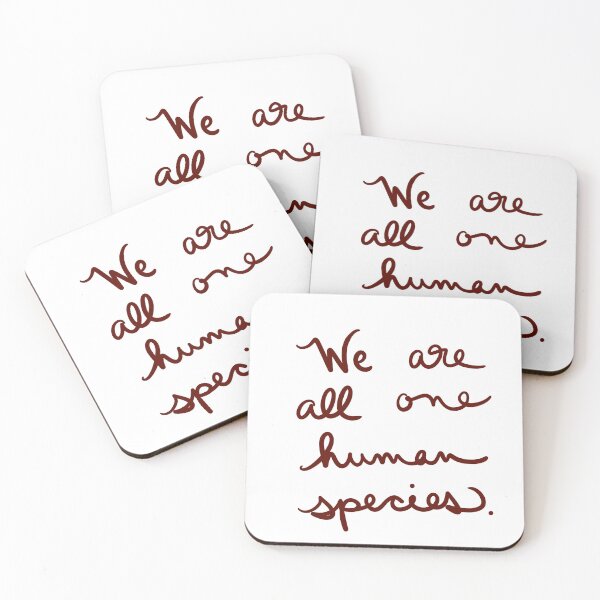 We are
all one
We are
all one
human
We are
all one
huma
speci
We are
all one
human
species.